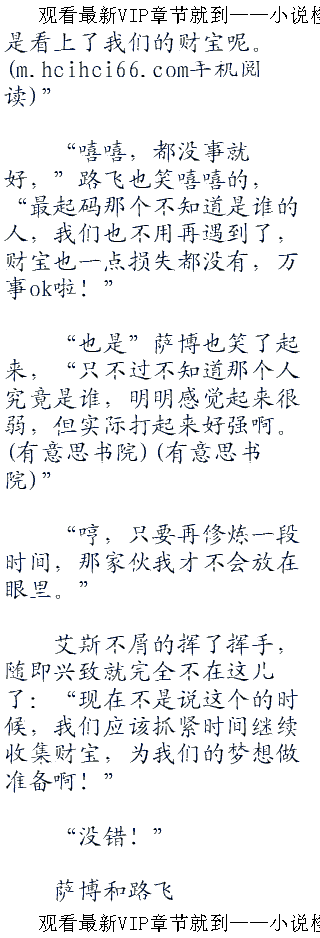 观看最新VIP章节就到——小说检
是看上了我们的财宝呢。
(m.hcihci66.com手机阅
读)”
“嘻嘻，都没事就
好，”路飞也笑嘻嘻的，
“最起码那个不知道是谁的
人，我们也不用再遇到了，
财宝也一点损失都没有，万
事ok啦！”
“也是”萨博也笑了起
来，“只不过不知道那个人
究竟是谁，明明感觉起来很
弱，但实际打起来好强啊。
(有意思书院)(有意思书
院)”
“哼，只要再修炼一段
时间，那家伙我才不会放在
眼里。”
艾斯不屑的挥了挥手，
随即兴致就完全不在这儿
了：“现在不是说这个的时
候，我们应该抓紧时间继续
收集财宝，为我们的梦想做
准备啊！”
“没错！”
萨博和路飞
观看最新VIP章节就到——小说检